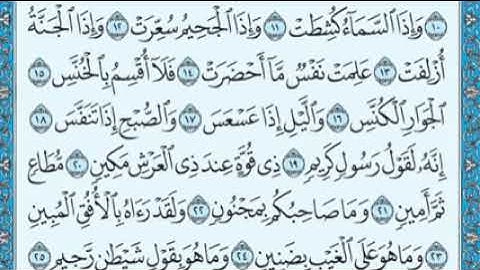 ١٠ وَإِذَا السَّمَآءُ كُشِطَتْ ١١ وَإِذَا الْجَحِيمُ سُعِّرَتْ ١٢ وَإِذَا الْجَنَّةُ
أُزْلِفَتْ ١٣ عَلِمَتْ نَفْسٌ مَّآ أَحْضَرَتْ ١٤ فَلَآ أُقْسِمُ بِالْخُنَّسِ ١٥
الْجَوَارِ الْكُنَّسِ ١٦ وَالَّيْلِ إِذَا عَسْعَسَ ١٧ وَالصُّبْحِ إِذَا تَنَفَّسَ ١٨
إِنَّهُۥ لَقَوْلُ رَسُولٍ كَرِيمٍ ١٩ ذِى قُوَّةٍ عِندَ ذِى الْعَرْشِ مَكِينٍ ٢٠ مُّطَاعٍ
ثَمَّ أَمِينٍ ٢١ وَمَا صَاحِبُكُم بِمَجْنُونٍ ٢٢ وَلَقَدْ رَءَاهُ بِالْأُفُقِ الْمُبِينِ
٢٣ وَمَا هُوَ عَلَى الْغَيْبِ بِضَنِينٍ ٢٤ وَمَا هُوَ بِقَوْلِ شَيْطَٰنٍ رَّجِيمٍ ٢٥